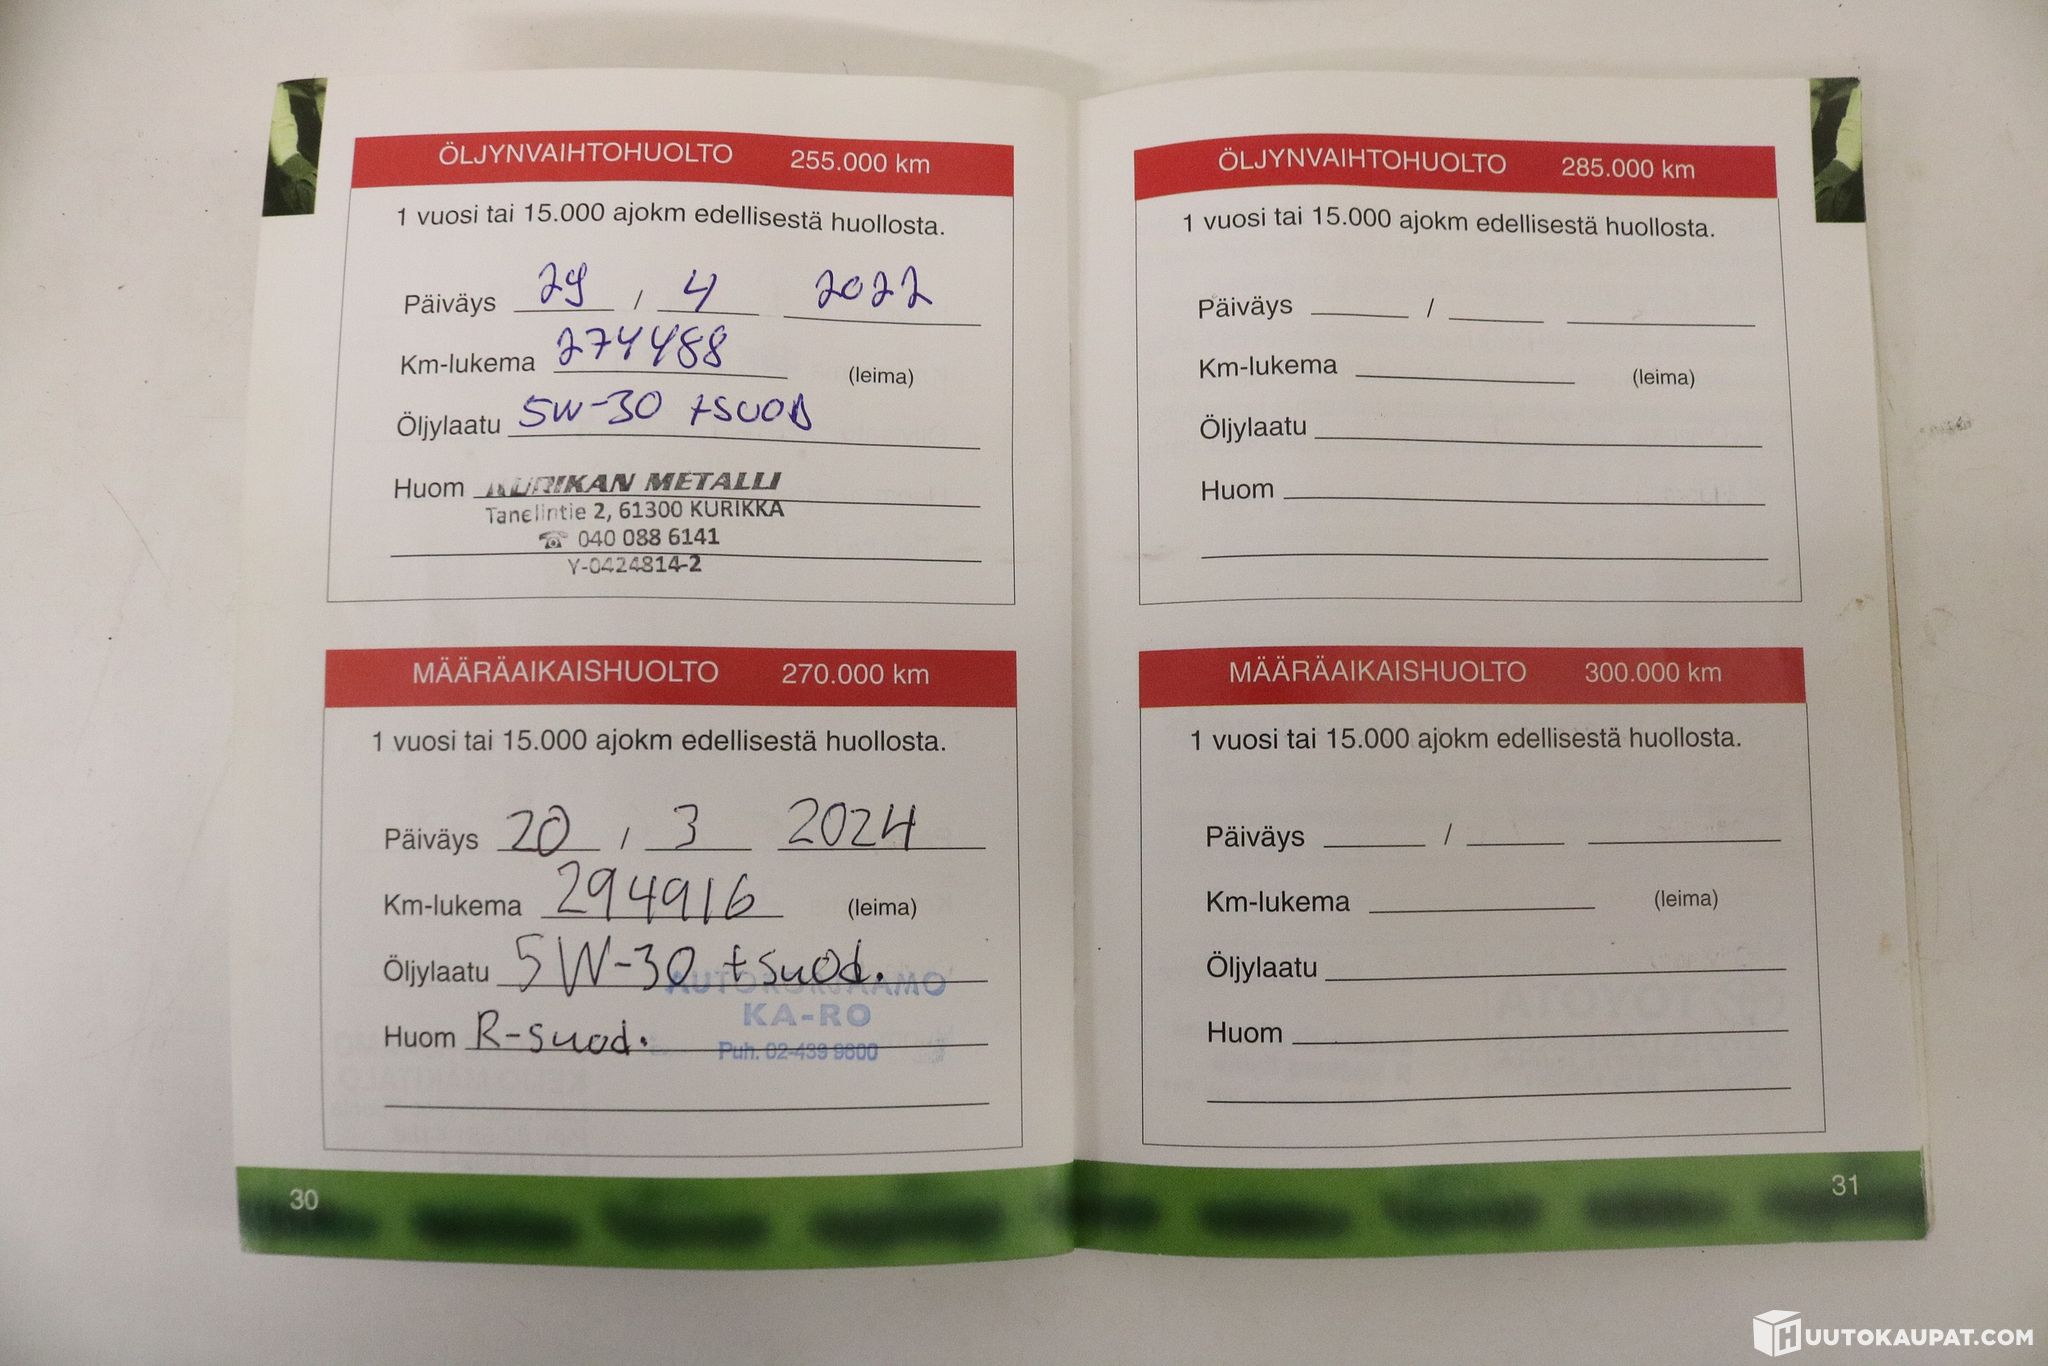 ÖLJYNVAIHTOHUOLTO 255.000 km
1 vuosi tai 15.000 ajokm edellisestä huollosta.
Päiväys 29 / 4 2022
Km-lukema 274488 (leima)
Öljylaatu 5W-30 +SUOD
Huom KURIKAN METALLI
Tanelintie 2, 61300 KURIKKA
☎ 040 088 6141
Y-0424814-2
MÄÄRÄAIKAISHUOLTO 270.000 km
1 vuosi tai 15.000 ajokm edellisestä huollosta.
Päiväys 20 / 3 2024
Km-lukema 294916 (leima)
Öljylaatu 5W-30 +suod.
AUTOKORJAAMO
KA-RO
Huom R-suod.
Puh. 02-439 9600
30
ÖLJYNVAIHTOHUOLTO 285.000 km
1 vuosi tai 15.000 ajokm edellisestä huollosta.
Päiväys /
Km-lukema (leima)
Öljylaatu
Huom
MÄÄRÄAIKAISHUOLTO 300.000 km
1 vuosi tai 15.000 ajokm edellisestä huollosta.
Päiväys /
Km-lukema (leima)
Öljylaatu
Huom
31
HUUTOKAUPAT.COM